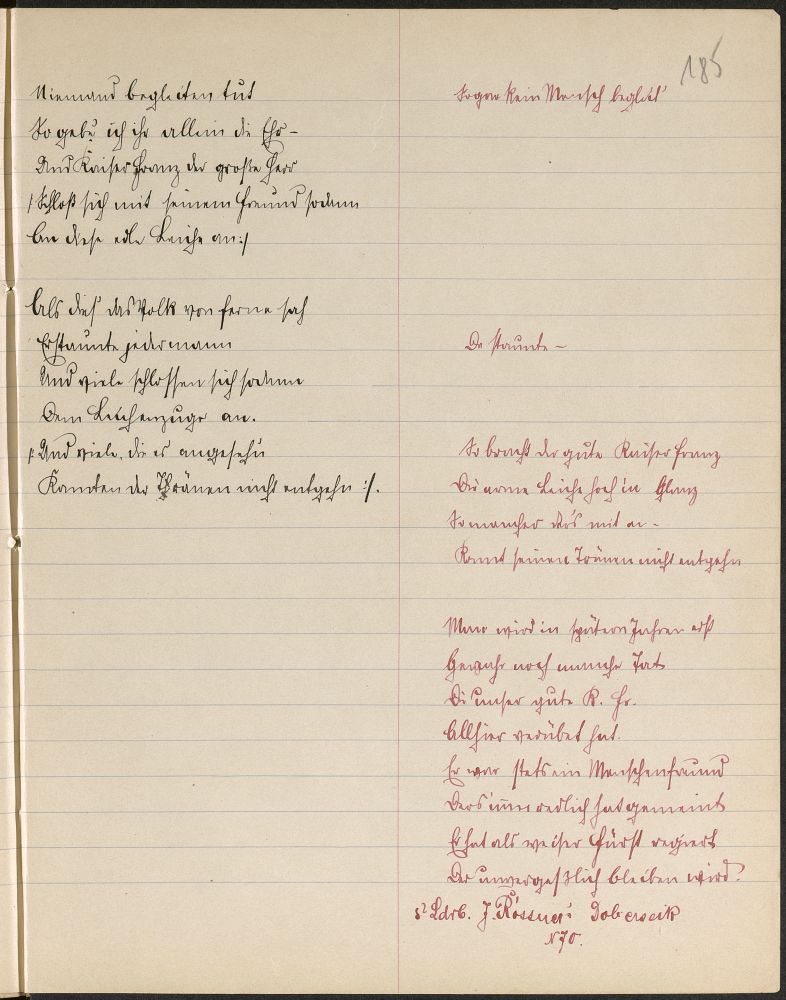 185
Niemand begleiten tut
So gebe ich ihr allein die Ehr –
Und Kaiser Franz der große Herr
/: Schloß sich mit seinem Freund sodann
An diese edle Leiche an :/
Als dies das Volk von ferne sah
Erstaunte jedermann
Und viele schlossen sich sodann
Dem Leichenzuge an.
/: Und viele, die es angesehn
Konnten der Thränen nicht entgehn :/.
Sogar kein Mensch begleit'
Da staunte –
So bracht der gute Kaiser Franz
Die arme Leiche hoch in Glanz
So mancher der's mit an –
Konnt seinen Tränen nicht entgehn
Man wird in spätern Jahren erst
Gewahr noch manche Tat
Die unser gute K. Fr.
Allhier verübet hat.
Er war stets ein Menschenfreund
Der's immer redlich hat gemeint
Er hat als weiser Fürst regiert
Der unvergeßlich bleiben wird.
Ldrb. J. Rössner: Doberseik
N 70.